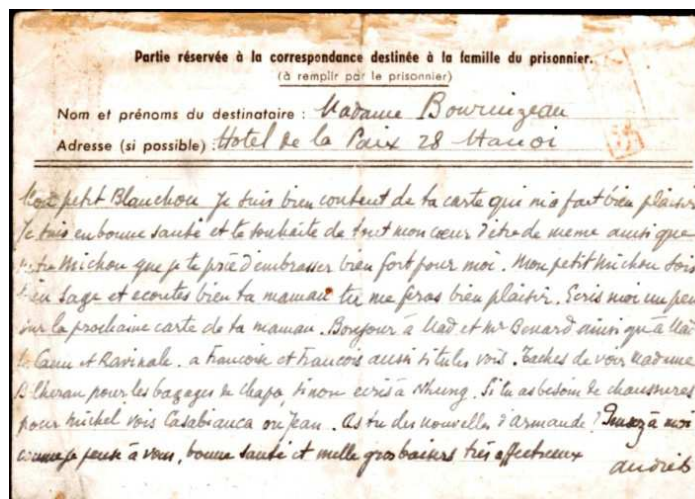 Partie réservée à la correspondance destinée à la famille du prisonnier.
(à remplir par le prisonnier)
Nom et prénoms du destinataire : Madame Bournizeau
Adresse (si possible) : Hotel de la Paix 28 Hanoi
Mon petit Blanchou je suis bien content de ta carte qui m'a fait bien plaisir
Je suis en bonne santé et te souhaite de tout mon cœur d'être de meme ainsi que
notre Michou que je te prie d'embrasser bien fort pour moi. Mon petit Michou sois
bien sage et ecoutes bien ta maman tu me feras bien plaisir. Ecris moi un peu
sur la prochaine carte de ta maman. Bonjour à Mad et Mr Benard ainsi qu'à Mad
et Ravinale. a Francoise et Francois aussi si tu les vois. Taches de voir Madame
Blheran pour les bagages de Chapa, sinon ecris à Nhung. Si tu as besoin de chaussures
pour Michel vois Casabianca ou Jean. As tu des nouvelles d'armande? Pensez à moi
comme je pense à vous, bonne santé et mille gros baisers très affectueux
andré